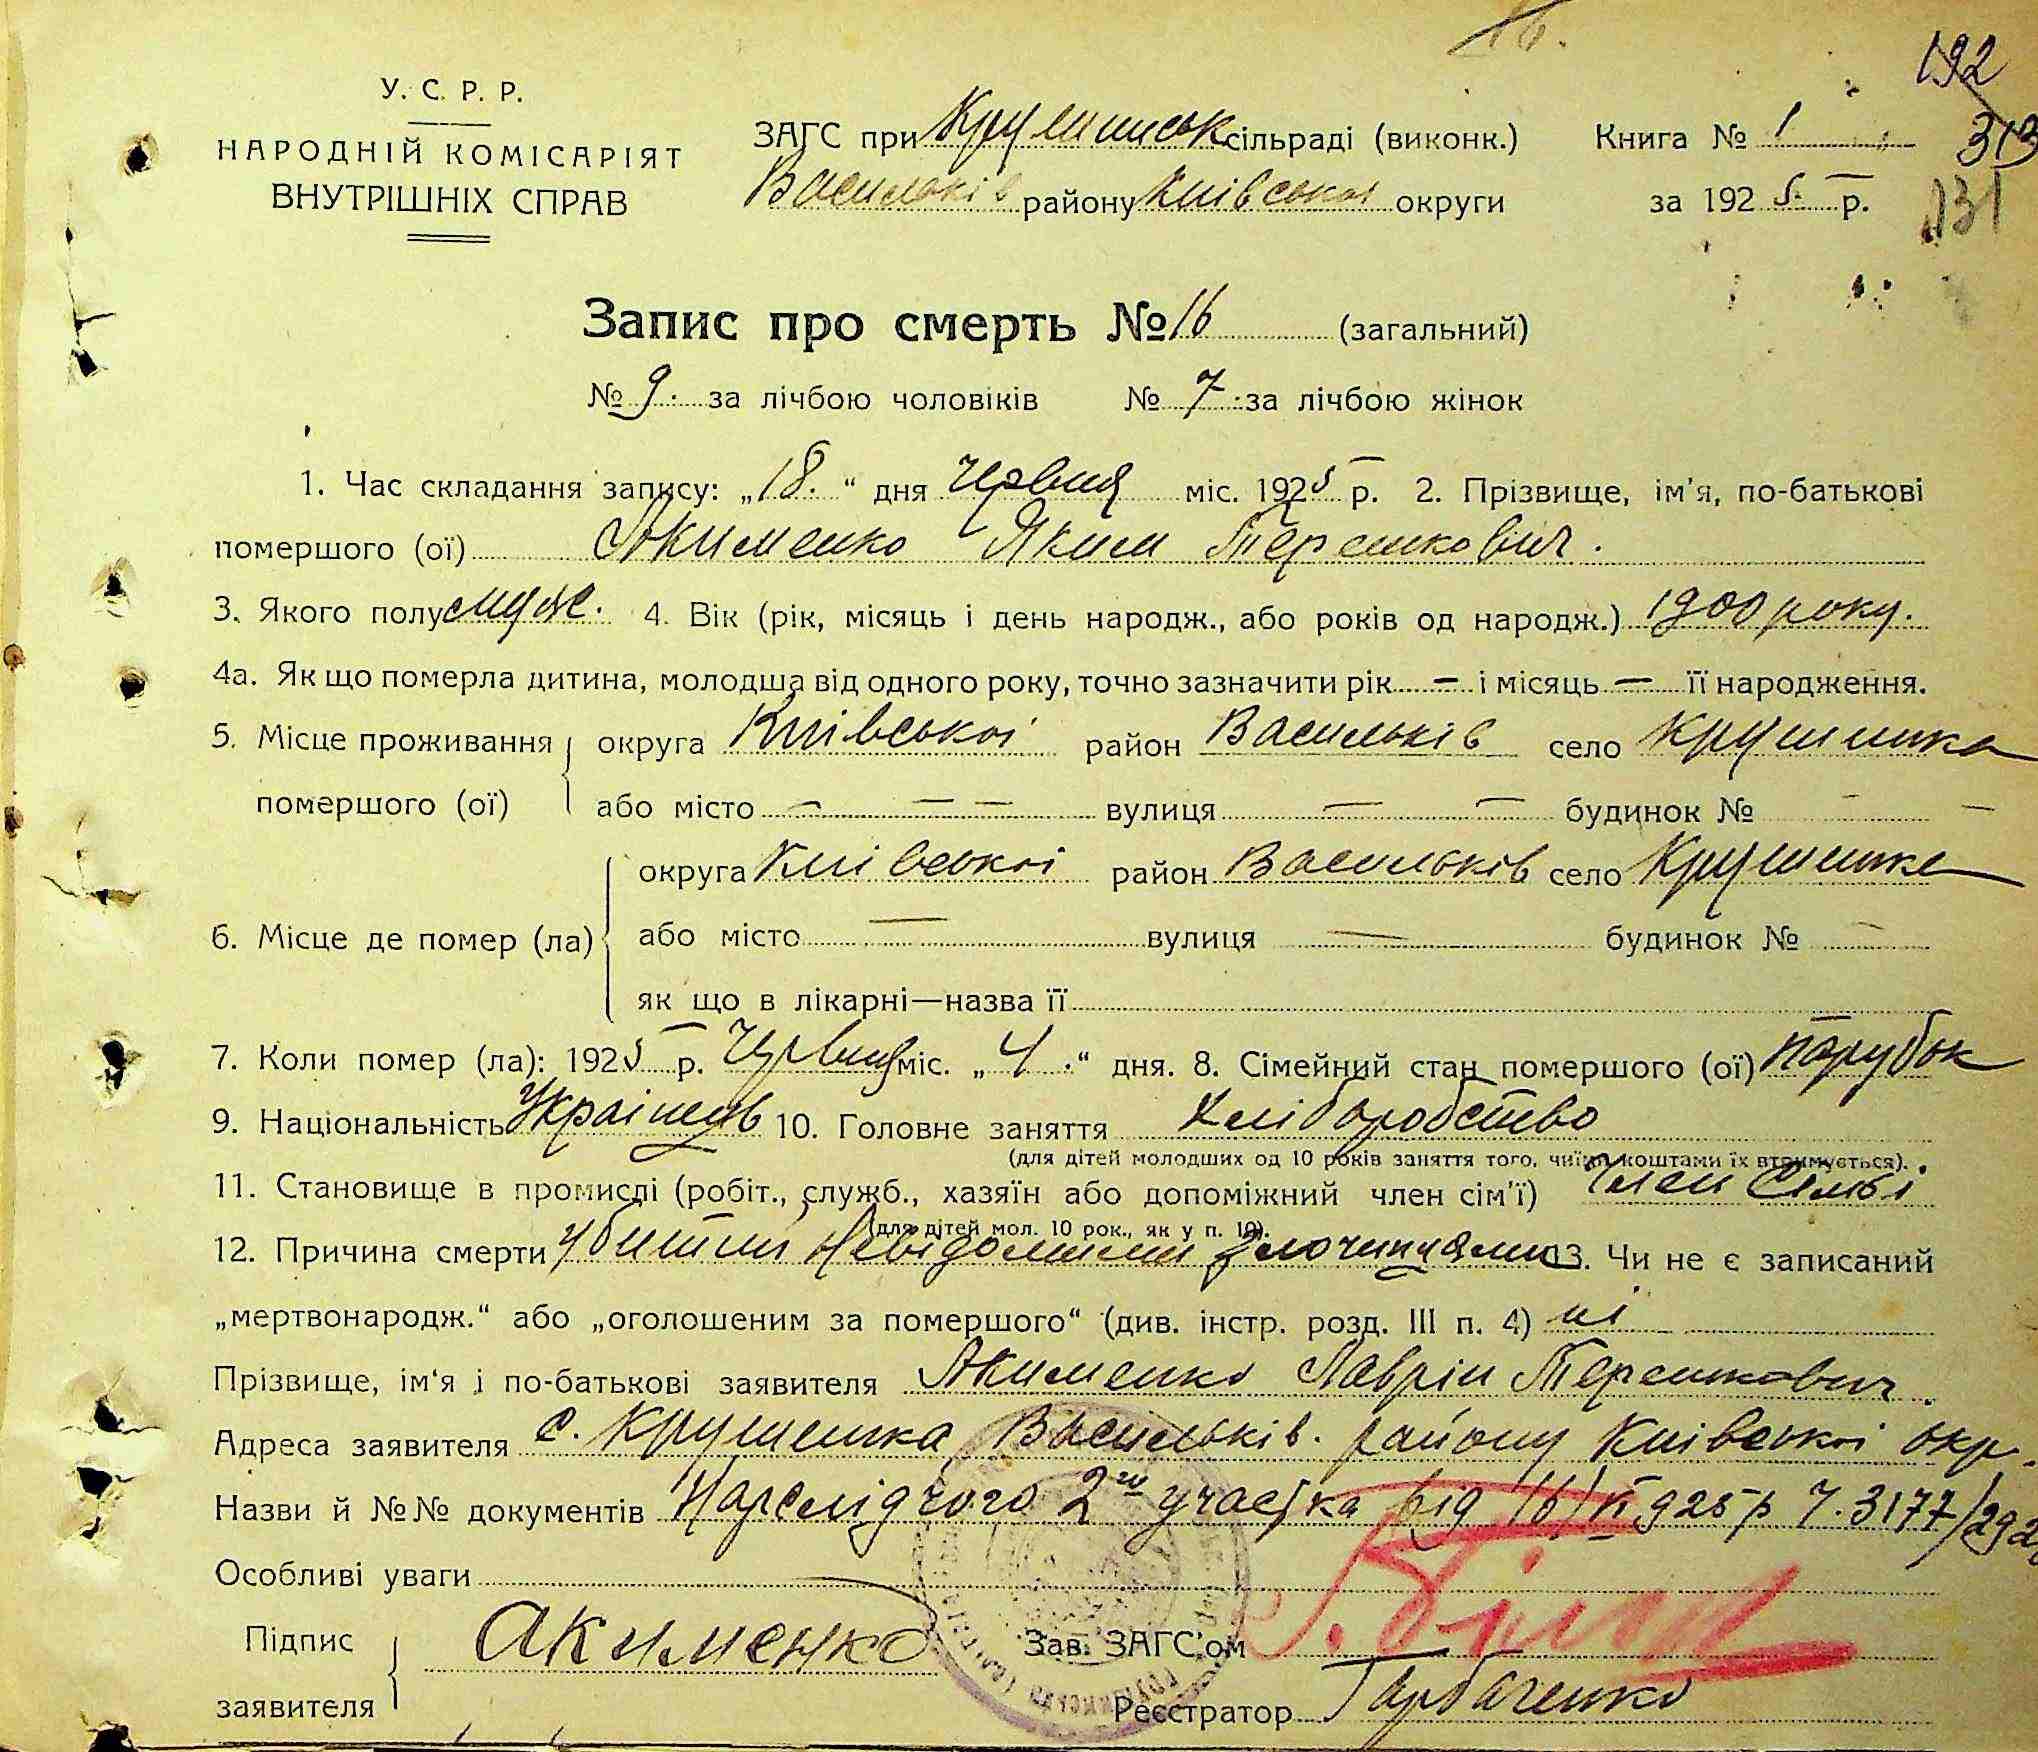 16.
192
У. С. Р. Р.
НАРОДНІЙ КОМІСАРІЯТ
ВНУТРІШНІХ СПРАВ
ЗАГС при Крушинськ сільраді (виконк.) Книга № 1 313
Васильків району Київської округи за 1925 р. 131
Запис про смерть № 16 (загальний)
№ 9. за лічбою чоловіків № 7. за лічбою жінок
1. Час складання запису: „18.“ дня червня міс. 1925 р. 2. Прізвище, ім'я, по-батькові
помершого (ої) Акименко Яким Терешкович.
3. Якого полу муж. 4. Вік (рік, місяць і день народж., або років од народж.) 1900 року.
4а. Як що померла дитина, молодша від одного року, точно зазначити рік — і місяць — її народження.
5. Місце проживання округа Київської район Васильків село Крушинка
помершого (ої) або місто — — — вулиця — — будинок № — —
округа Київської район Васильків село Крушинка
6. Місце де помер (ла) або місто — вулиця — будинок № —
як що в лікарні—назва її
7. Коли помер (ла): 1925 р. Червня міс. „4.“ дня. 8. Сімейний стан помершого (ої) парубок
9. Національність Українець 10. Головне заняття хліборобство
(для дітей молодших од 10 років заняття того, чиїми коштами їх втримується).
11. Становище в промислі (робіт., служб., хазяїн або допоміжний член сім'ї) член Сімьі
(для дітей мол. 10 рок., як у п. 10).
12. Причина смерти убитий невідомими злочинцями 13. Чи не є записаний
„мертвонародж.“ або „оголошеним за помершого“ (див. інстр. розд. III п. 4) ні
Прізвище, ім'я і по-батькові заявителя Акименко Лаврін Терешкович.
Адреса заявителя с. Крушенка Васильків. району Київської окр.
Назви й №№ документів Нарслідчого 2го участка від 16/VI 925 р Ч. 3177/292
Особливі уваги
Підпис Акименко Зав. ЗАГС'ом
заявителя Реєстратор Гарбаченко